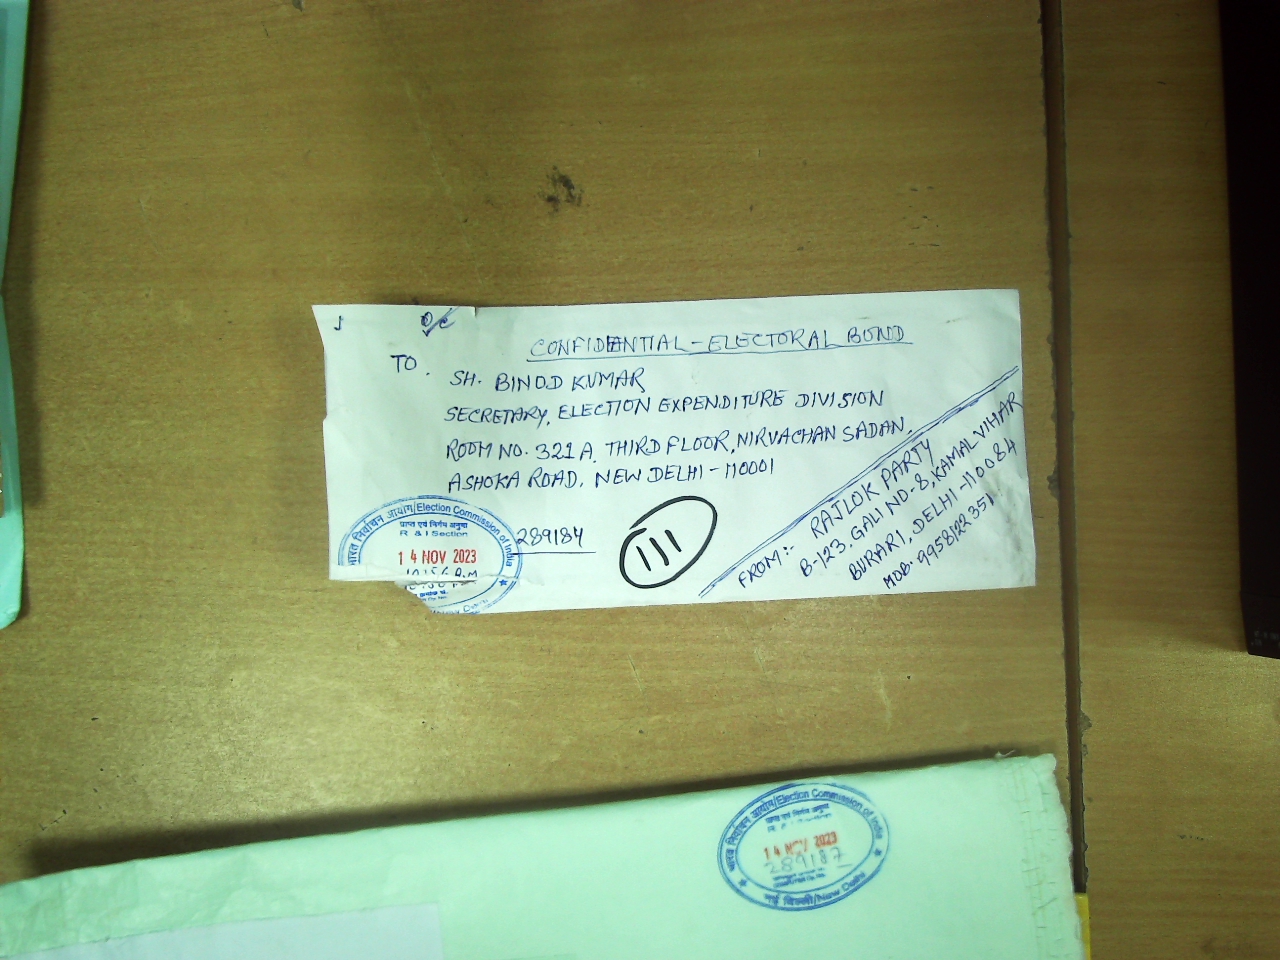 O/C
CONFIDENTIAL - ELECTORAL BOND
TO.
SH. BINOD KUMAR
SECRETARY, ELECTION EXPENDITURE DIVISION
ROOM NO. 321A, THIRD FLOOR, NIRVACHAN SADAN,
ASHOKA ROAD, NEW DELHI - 110001
भारत निर्वाचन आयोग/Election Commission of India
प्राप्त एवं निर्गम अनुभाग
R & I Section
14 NOV 2023
289184
111
FROM:- RAJLOK PARTY
B-123, GALI NO-8, KAMAL VIHAR
BURARI, DELHI - 110084
MOB. 9958122351
भारत निर्वाचन आयोग/Election Commission of India
प्राप्त एवं निर्गम अनुभाग
R & I Section
14 NOV 2023
289187
नई दिल्ली/New Delhi